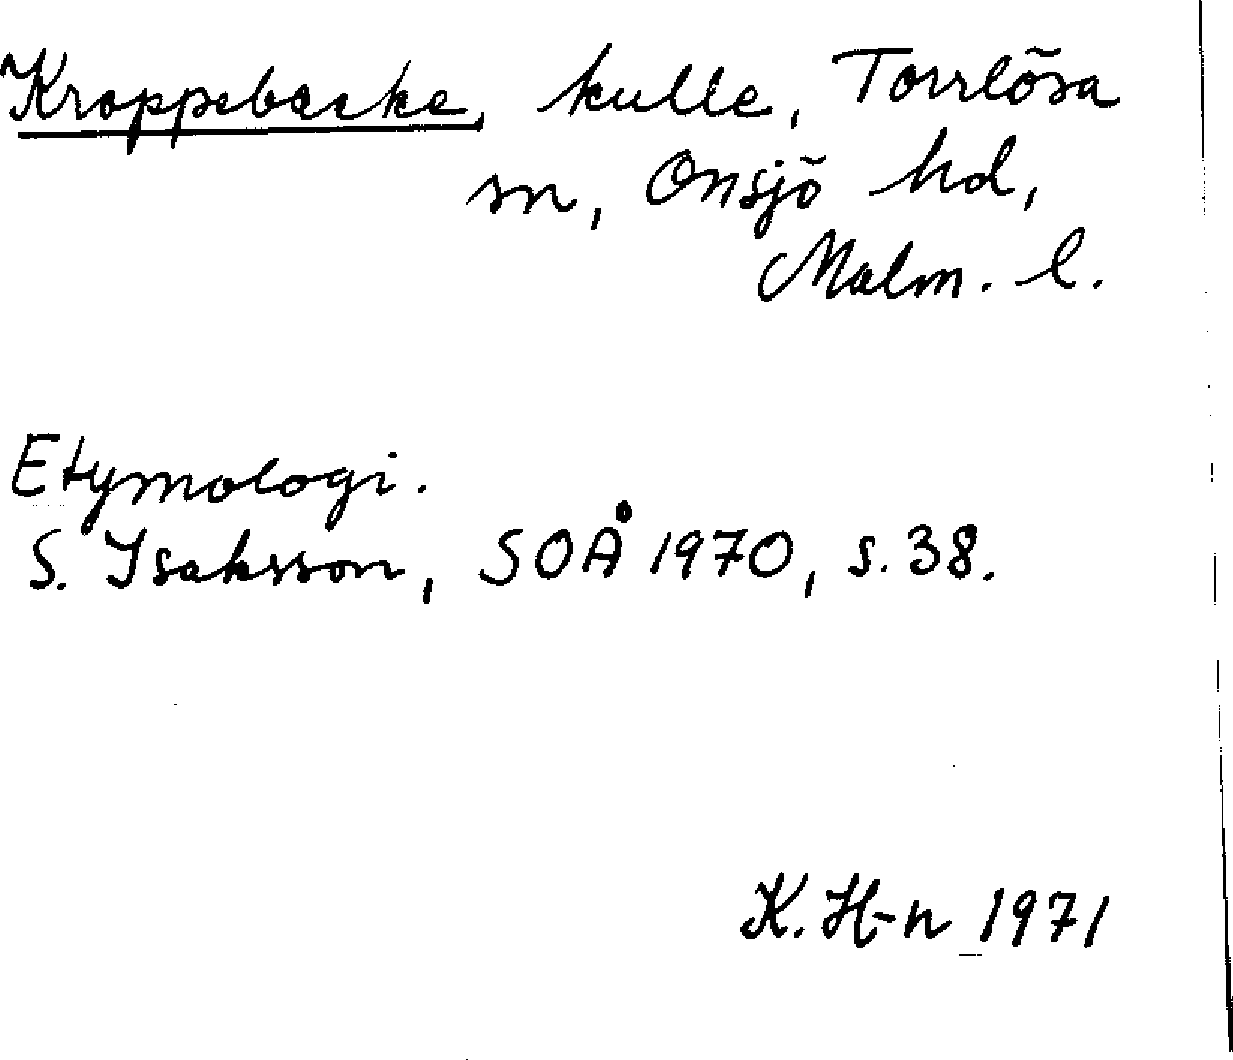 Kroppebacke, kulle, Torrlösa
sn, Onsjö hd,
Malm. l.
Etymologi.
S. Isaksson, SOÅ 1970, s. 38.
K. H-n 1971